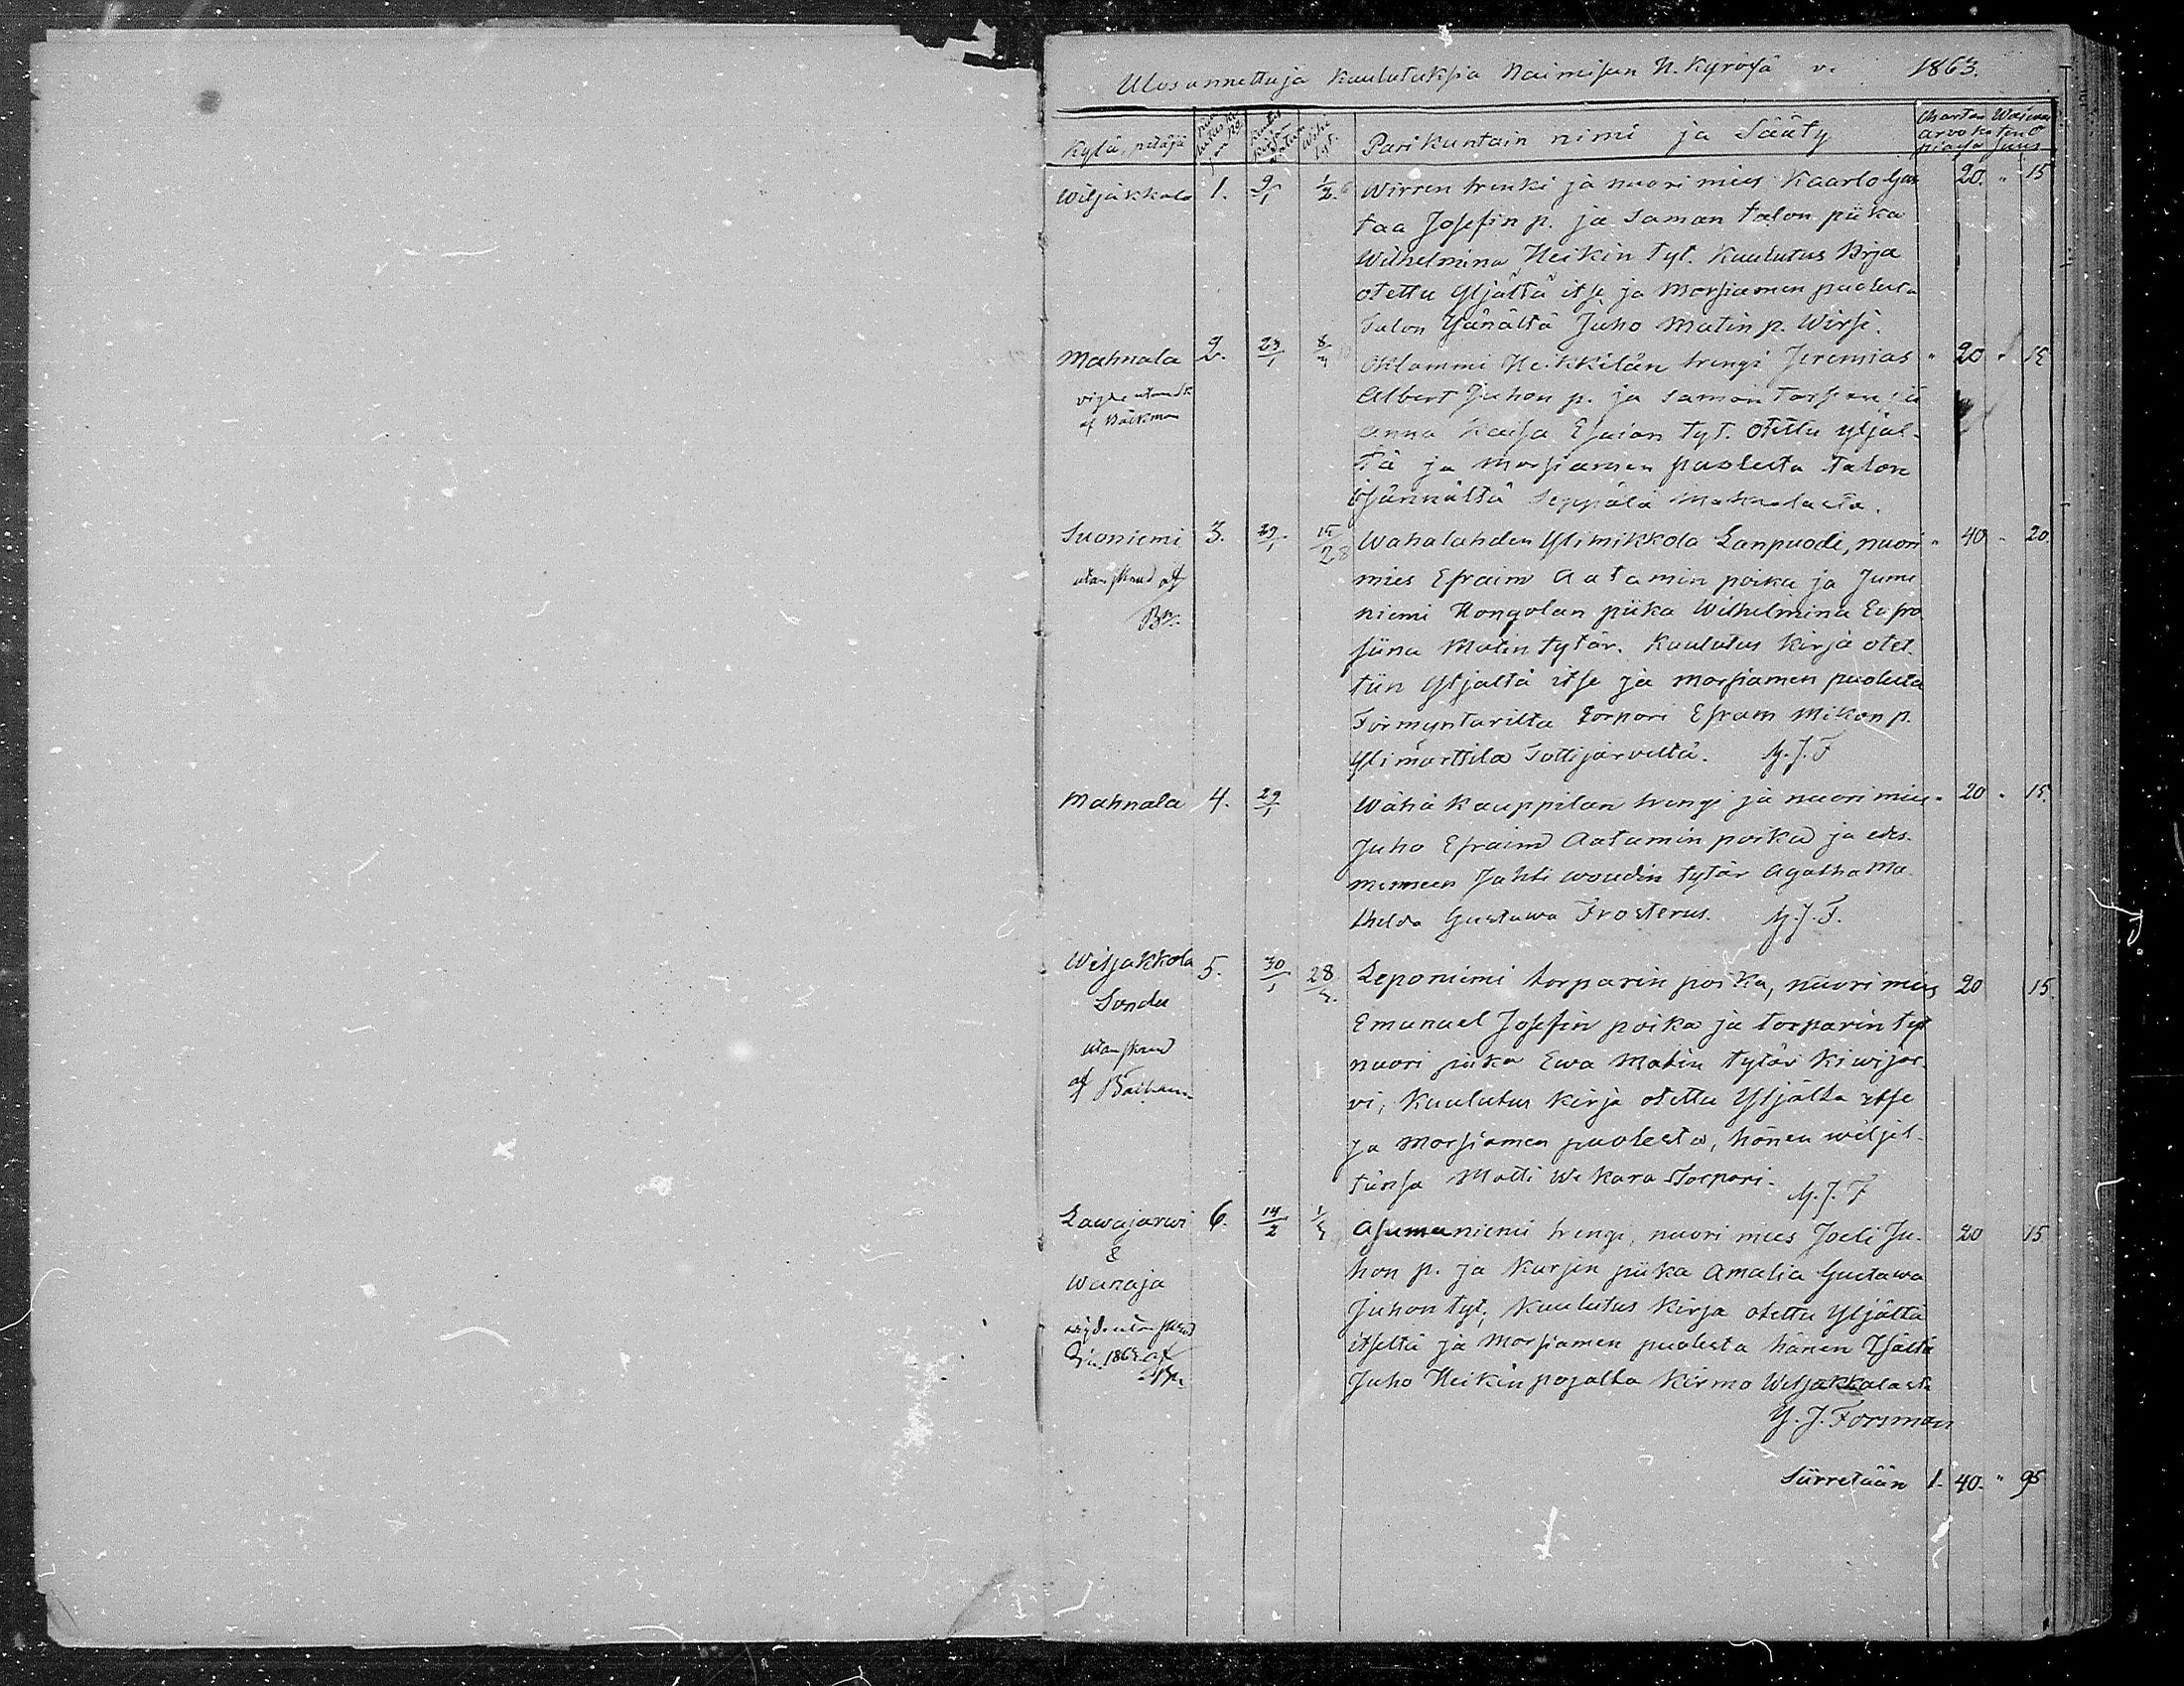 Ulosannettuja Kuulutuksia Naimisen H. Kyrösä v. 1863.
Kylä, pitäjä Parikuntain nimi ja Sääty
Wiljakkala 1. 9/1 1/2. Wirren trenki ja nuori mies Kaarlo Gus 20. " 15
taa Josefin p. ja saman talon piika
Wilhelmina Heikin tyt. Kuulutus Kirja
otettu Yljältä itse ja Morsiamen puolesta
Talon Isänältä Juho Matin p. Wirsi.
Mahnala 2. 23/1 Heikkilän trengi Jeremias " 20 " 15
af Bäckman
Albert Juhon p. ja saman
Anna Kaisa Esaian tyt. Otettu yljäl-
tä ja morsiamen puolesta talon
isännältä Seppälä Mahnalasta.
Suoniemi 3. 15/2 Wahalahden Ylimikkola Lanpuodi, nuori " 40 " 20.
mies Efraim Aatamin poika ja
niemi Hongolan piika Wilhelmina Eufro
siina Matin tytär. Kuulutus Kirja otet.
tiin Yljältä itse ja morsiamen puolesta
Förmyntarilta torpari Efram Mikon p.
Ylimärttilä Tottijärveltä. Y. J. F
Mahnala 4. 29/1 Wähä Kauppilan trengi ja nuori mies " 20 " 15.
Juho Efraim Aatamin poika ja edes-
menneen Jahti woudin tytär Agatha Ma-
thilda Gustawa Frosterus. Y. J. F.
Wiljakkala 5. 30/1 28/ Leponiemi torparin poika, nuori mies 20 15.
Sondu
Emanuel Josefin poika ja torparin tyt
nuori piika Ewa Matin tytär Kiwijär-
af
vi, Kuulutus Kirja otettu Yljältä itse
ja Morsiamen puolesta, hänen
Matti Wekara Torpari. Y. J. F
Lawajärwi 6. 14/2 Asumaniemi trengi, nuori mies Joeli Ju- 20 15
&
hon p. ja Kurjen piika Amalia Gustawa
Wanaja
Juhon tyt, Kuulutus Kirja otettu Yljältä
itseltä ja Morsiamen puolesta hänen Isältä
1863 af
Juho Heikin pojalta Kirmo Wiljakkalasta
Y. J. Forsman
Siirretään 1. 40. " 95